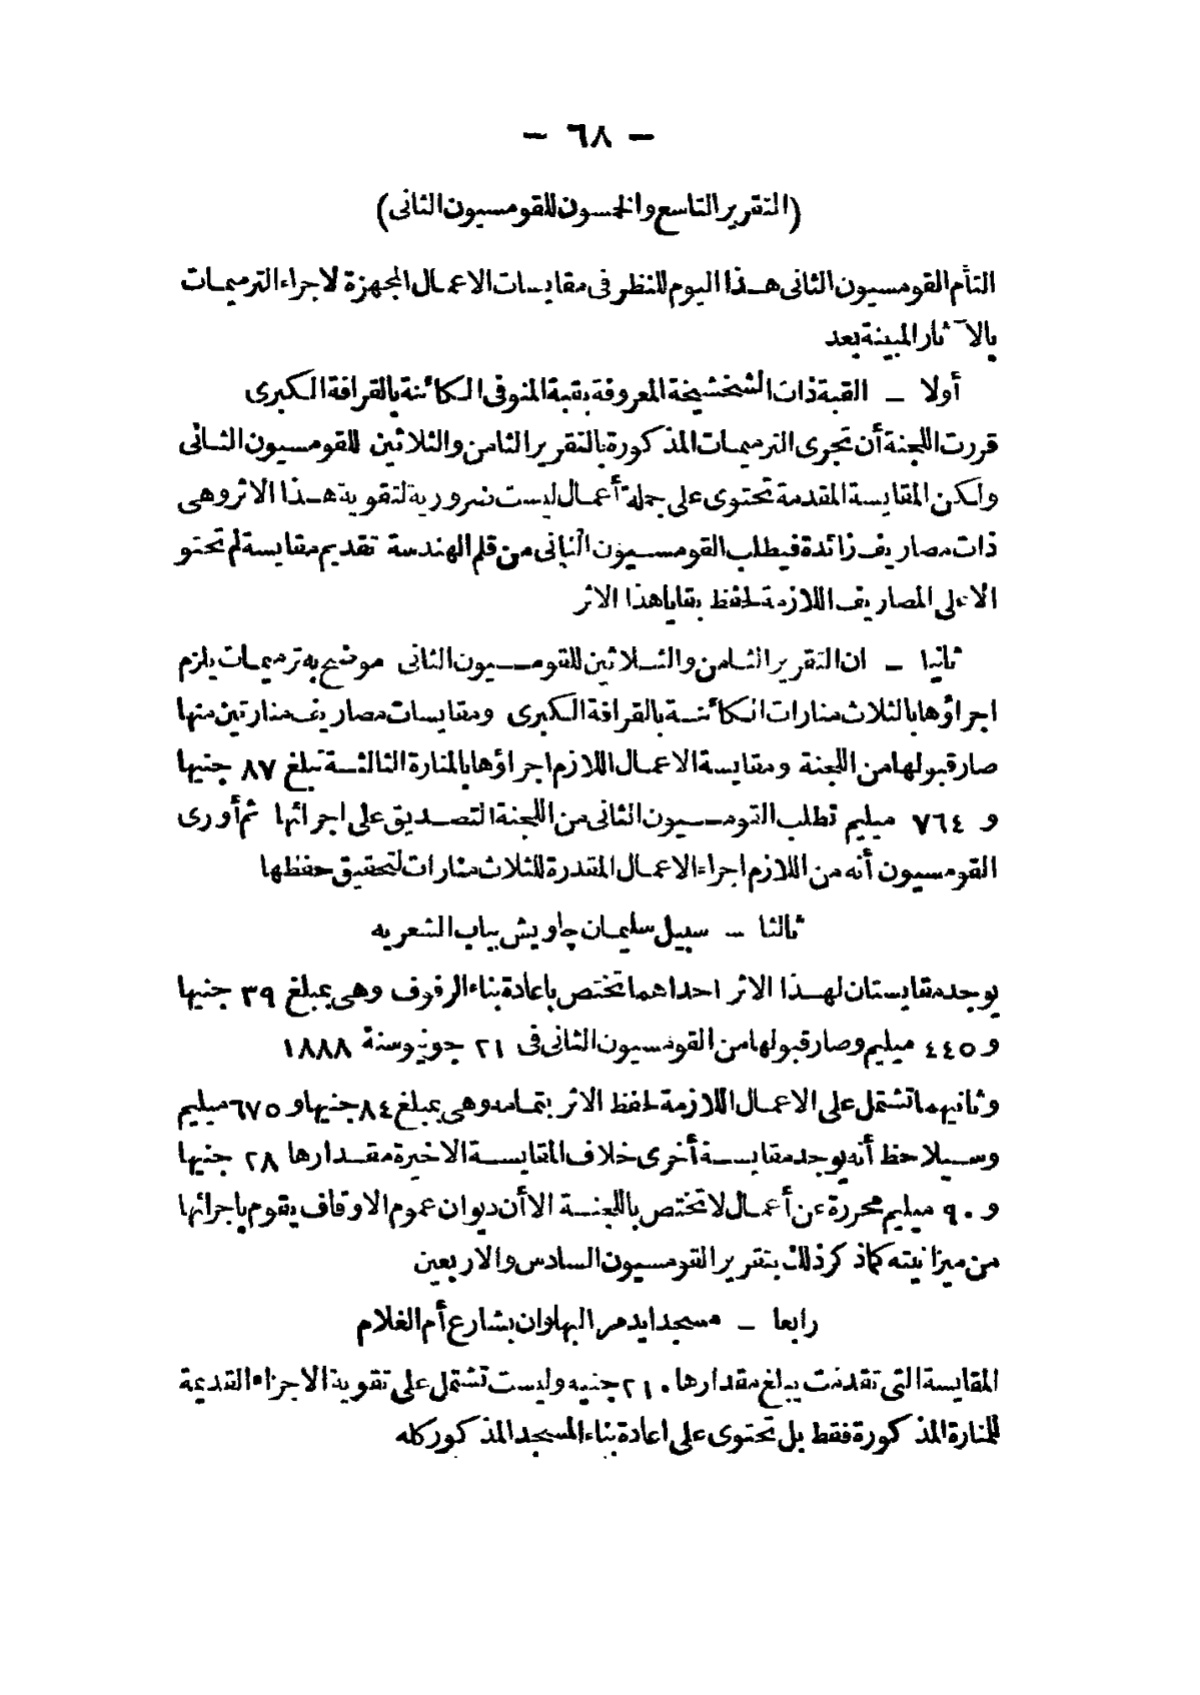 — ٦٨ —
(التقرير التاسع والخمسون للقومسيون الثانى)
التأم القومسيون الثانى هذا اليوم للنظر فى مقايسات الاعمال المجهزة لاجراء الترميمات
بالآثار المبينة بعد
أولا — القبة ذات الشخشيخة المعروفة بقبة المنوفى الكائنة بالقرافة الكبرى
قررت اللجنة أن تجرى الترميمات المذكورة بالتقرير الثامن والثلاثين للقومسيون الثانى
ولكن المقايسة المقدمة تحتوى على جملة أعمال ليست ضرورية لتقوية هذا الاثر وهى
ذات مصاريف زائدة فيطلب القومسيون الثانى من قلم الهندسة تقديم مقايسة لم تحتو
الا على المصاريف اللازمة لحفظ بقايا هذا الاثر
ثانيا — ان التقرير الثامن والثلاثين للقومسيون الثانى موضح به ترميمات يلزم
اجراؤها بالثلاث منارات الكائنة بالقرافة الكبرى ومقايسات مصاريف منارتين منها
صار قبولها من اللجنة ومقايسة الاعمال اللازم اجراؤها بالمنارة الثالثة تبلغ ٨٧ جنيها
و ٧٦٤ مليم تطلب القومسيون الثانى من اللجنة التصديق على اجرائها ثم أورى
القومسيون أنه من اللازم اجراء الاعمال المقدرة للثلاث منارات لتحقيق حفظها
ثالثا — سبيل سليمان چاويش بباب الشعريه
يوجد مقايستان لهذا الاثر احداهما تختص باعادة بناء الرفوف وهى بمبلغ ٣٩ جنيها
و ٤٤٥ مليم وصار قبولها من القومسيون الثانى فى ٢١ جونيو سنة ١٨٨٨
وثانيهما تشتمل على الاعمال اللازمة لحفظ الاثر بتمامه وهى بمبلغ ٨٤ جنيها و ٦٧٥ مليم
وسيلاحظ أنه يوجد مقايسة أخرى خلاف المقايسة الاخيرة مقدارها ٢٨ جنيها
و ٩٠ مليم محررة عن أعمال لا تختص باللجنة الا أن ديوان عموم الاوقاف يقوم باجرائها
من ميزانيته كما ذكر ذلك بتقرير القومسيون السادس والاربعين
رابعا — مسجد ايدمر البهلوان بشارع أم الغلام
المقايسة التى تقدمت يبلغ مقدارها ٢١٠ جنيه وليست تشتمل على تقوية الاجزاء القديمة
للمنارة المذكورة فقط بل تحتوى على اعادة بناء المسجد المذكور كله